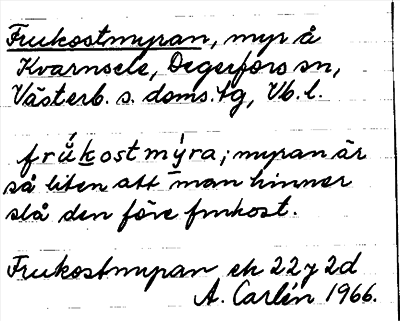 Frukostmyran, myr å
Kvarnsele, Degerfors sn,
Västerb. s. doms. tg, Vb. l.
frùkostmýra; myran är
så liten att man hinner
slå den före frukost.
Frukostmyran ek 22y2d
A. Carlén 1966.